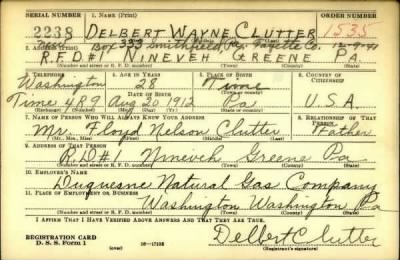 SERIAL NUMBER 1. NAME (Print) ORDER NUMBER
2238 DELBERT WAYNE CLUTTER 1535
(First) (Middle) (Last)
2. ADDRESS (Print) Box 333 Smithfield, Pa. Fayette Co. 12-9-41
R.F.D#1 NINEVEH GREENE PA.
(Number and street or R. F. D. number) (Town) (County) (State)
3. TELEPHONE 4. AGE IN YEARS 5. PLACE OF BIRTH 6. COUNTRY OF CITIZENSHIP
Washington 28 Time
DATE OF BIRTH
Time 489 Aug 20 1912 Pa U.S.A.
(Exchange) (Number) (Mo.) (Day) (Yr.) (State or country)
7. NAME OF PERSON WHO WILL ALWAYS KNOW YOUR ADDRESS 8. RELATIONSHIP OF THAT PERSON
Mr. Floyd Nelson Clutter Father
(Mr., Mrs., Miss) (First) (Middle) (Last)
9. ADDRESS OF THAT PERSON
R.D#1 Nineveh Greene Pa
(Number and street or R. F. D. number) (Town) (County) (State)
10. EMPLOYER'S NAME
Duquesne Natural Gas Company
11. PLACE OF EMPLOYMENT OR BUSINESS
Washington Washington Pa
(Number and street or R. F. D. number) (Town) (County) (State)
I AFFIRM THAT I HAVE VERIFIED ABOVE ANSWERS AND THAT THEY ARE TRUE.
REGISTRATION CARD
D. S. S. Form 1 (over) 16—17105 Delbert Clutter
(Registrant's signature)